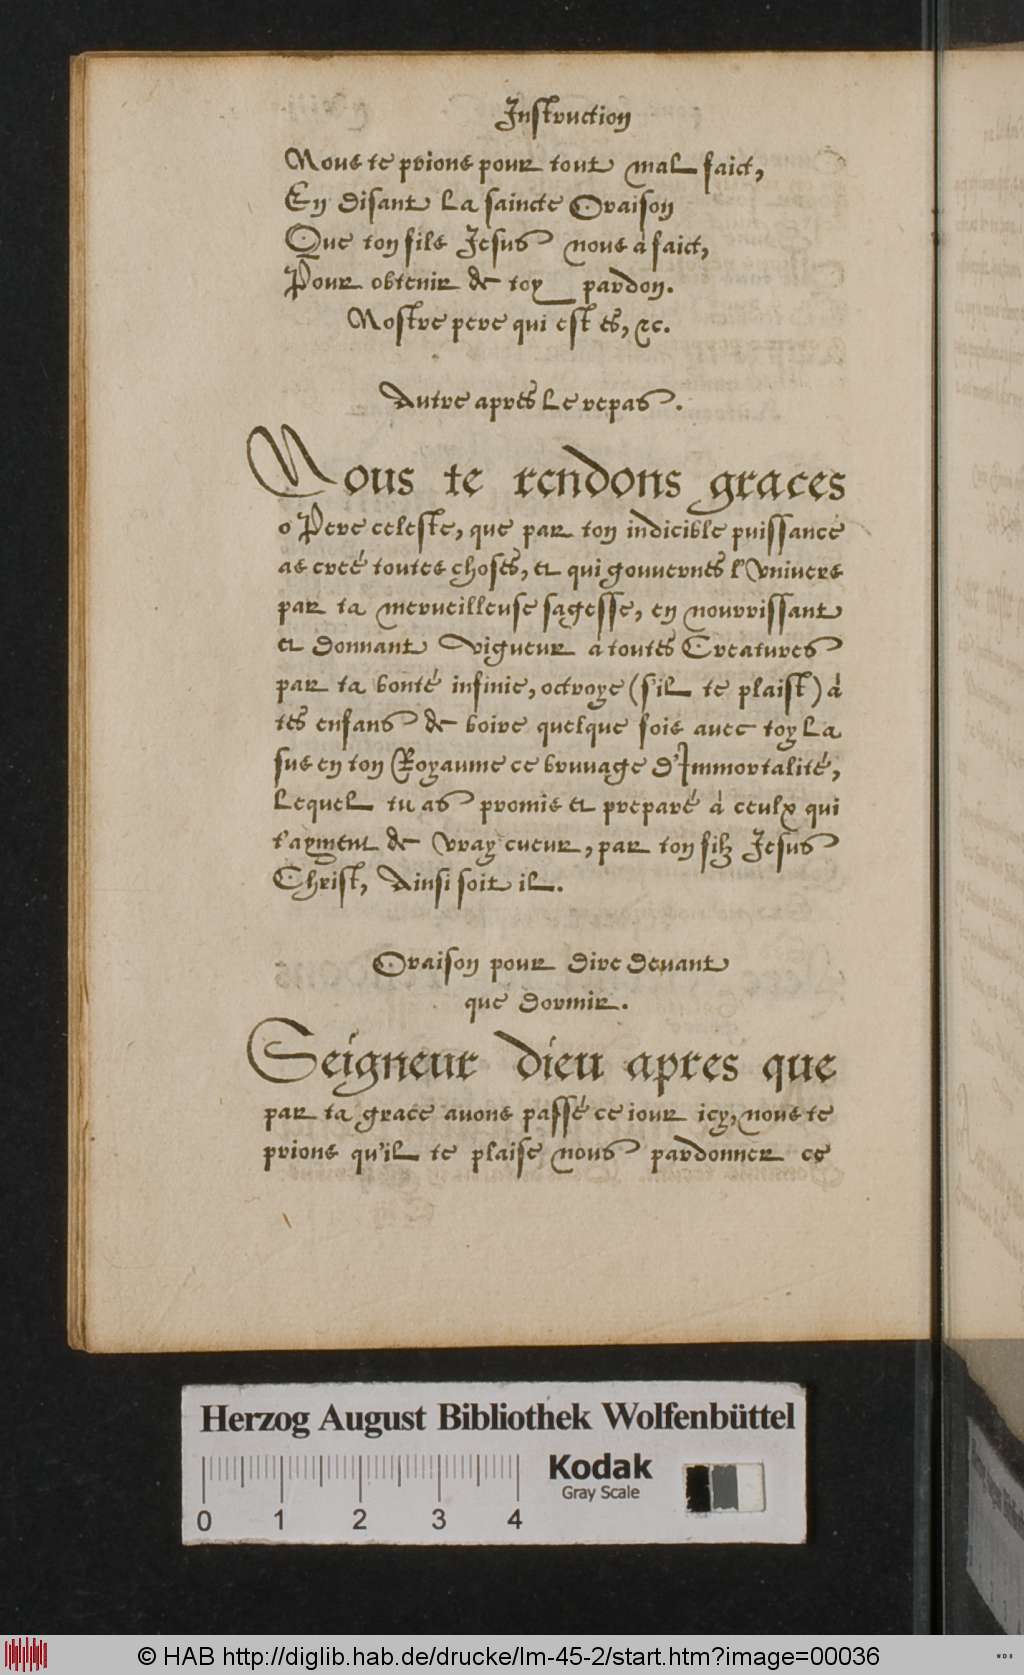 Instruction
Nous te prions pour tout mal faict,
En disant la saincte Oraison
Que ton filz Jesus nous a faict,
Pour obtenir de toy pardon.
Nostre pere qui est es, &c.
Autre apres le repas.
Nous te rendons graces
o Pere celeste, que par ton indicible puissance
as creé toutes choses, et qui gouvernes l'Univers
par ta merveilleuse sagesse, en nourrissant
et donnant vigueur a toutes Creatures
par ta bonté infinie, octroye (s'il te plaist) à
tes enfans de boire quelque fois avec toy la
sus en ton Royaume ce bruvage d'Immortalité,
lequel tu as promis et preparé à ceulx qui
t'ayment de vray cueur, par ton filz Jesus
Christ, Ainsi soit il.
Oraison pour dire devant
que dormir.
Seigneur dieu apres que
par ta grace avons passé ce iour icy, nous te
prions qu'il te plaise nous pardonner ce
Herzog August Bibliothek Wolfenbüttel
Kodak
Gray Scale
0 1 2 3 4
© HAB http://diglib.hab.de/drucke/lm-45-2/start.htm?image=00036